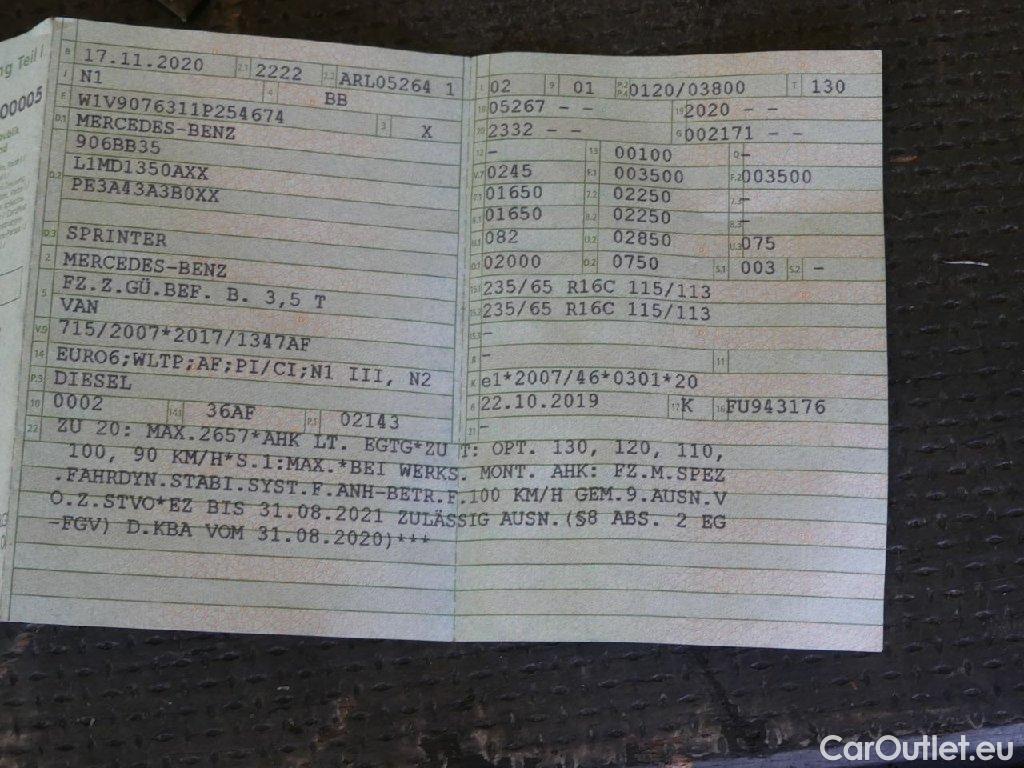 ng Teil I
00005
B 17.11.2020 2.1 2222 2.2 ARL05264 1
J N1 4 BB
E W1V9076311P254674 3 X
D.1 MERCEDES-BENZ
906BB35
D.2 L1MD1350AXX
PE3A43A3B0XX
D.3 SPRINTER
2 MERCEDES-BENZ
5 FZ.Z.GÜ.BEF. B. 3,5 T
VAN
V.9 715/2007*2017/1347AF
14 EURO6;WLTP;AF;PI/CI;N1 III, N2
P.3 DIESEL
10 0002 14.1 36AF P.1 02143
L 02 9 01 P.2 P.4 0120/03800 T 130
18 05267 - - 19 2020 - -
20 2332 - - G 002171 - -
12 - 13 00100 Q -
V.7 0245 F.1 003500 F.2 003500
7.1 01650 7.2 02250 7.3 -
8.1 01650 8.2 02250 8.3 -
U.1 082 U.2 02850 U.3 075
O.1 02000 O.2 0750 S.1 003 S.2 -
15.1 235/65 R16C 115/113
15.2 235/65 R16C 115/113
15.3 -
R - 11
K e1*2007/46*0301*20
6 22.10.2019 17 K 16 FU943176
21 -
22 ZU 20: MAX.2657*AHK LT. EGTG*ZU T: OPT. 130, 120, 110,
100, 90 KM/H*S.1:MAX.*BEI WERKS. MONT. AHK: FZ.M.SPEZ
.FAHRDYN.STABI.SYST.F.ANH-BETR.F.100 KM/H GEM.9.AUSN.V
O.Z.STVO*EZ BIS 31.08.2021 ZULÄSSIG AUSN.(§8 ABS. 2 EG
-FGV) D.KBA VOM 31.08.2020)***
CarOutlet.eu